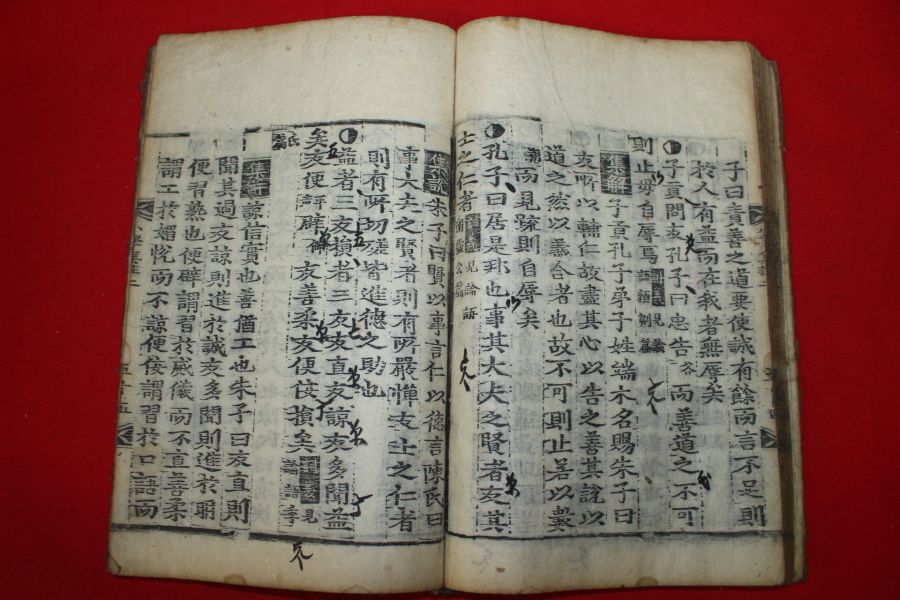 子曰責善之道要使誠有餘而言不足則
於人有益而在我者無辱矣
子貢問友孔子曰忠告而善道之不可
則止毋自辱焉
集解子貢孔子弟子姓端木名賜朱子曰
友所以輔仁故盡其心以告之善其說以
道之然以義合者也故不可則止若以數
而見疏則自辱矣
孔子曰居是邦也事其大夫之賢者友其
士之仁者見論語
集說朱子曰賢以事言仁以德言陳氏曰
事大夫之賢者則有所嚴憚友士之仁者
則有所切磋皆進德之助也
益者三友損者三友友直友諒友多聞益
矣友便辟友善柔友便佞損矣見論語季
氏篇
集解諒信實也善猶工也朱子曰友直則
聞其過友諒則進於誠友多聞則進於明
便習熟也便辟謂習於威儀而不直善柔
謂工於媚悅而不諒便佞謂習於口語而